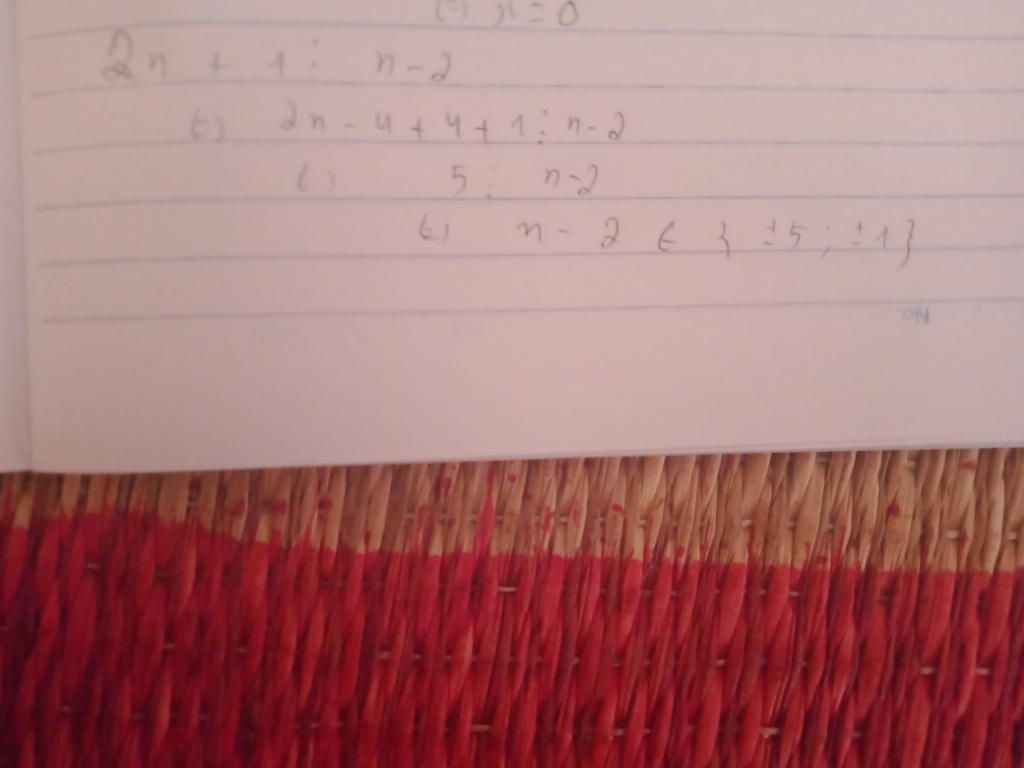 (=) x = 0
2n + 1 ⋮ n - 2
(=) 2n - 4 + 4 + 1 ⋮ n - 2
(=) 5 ⋮ n - 2
(=) n - 2 ∈ { ±5 ; ±1 }
No.